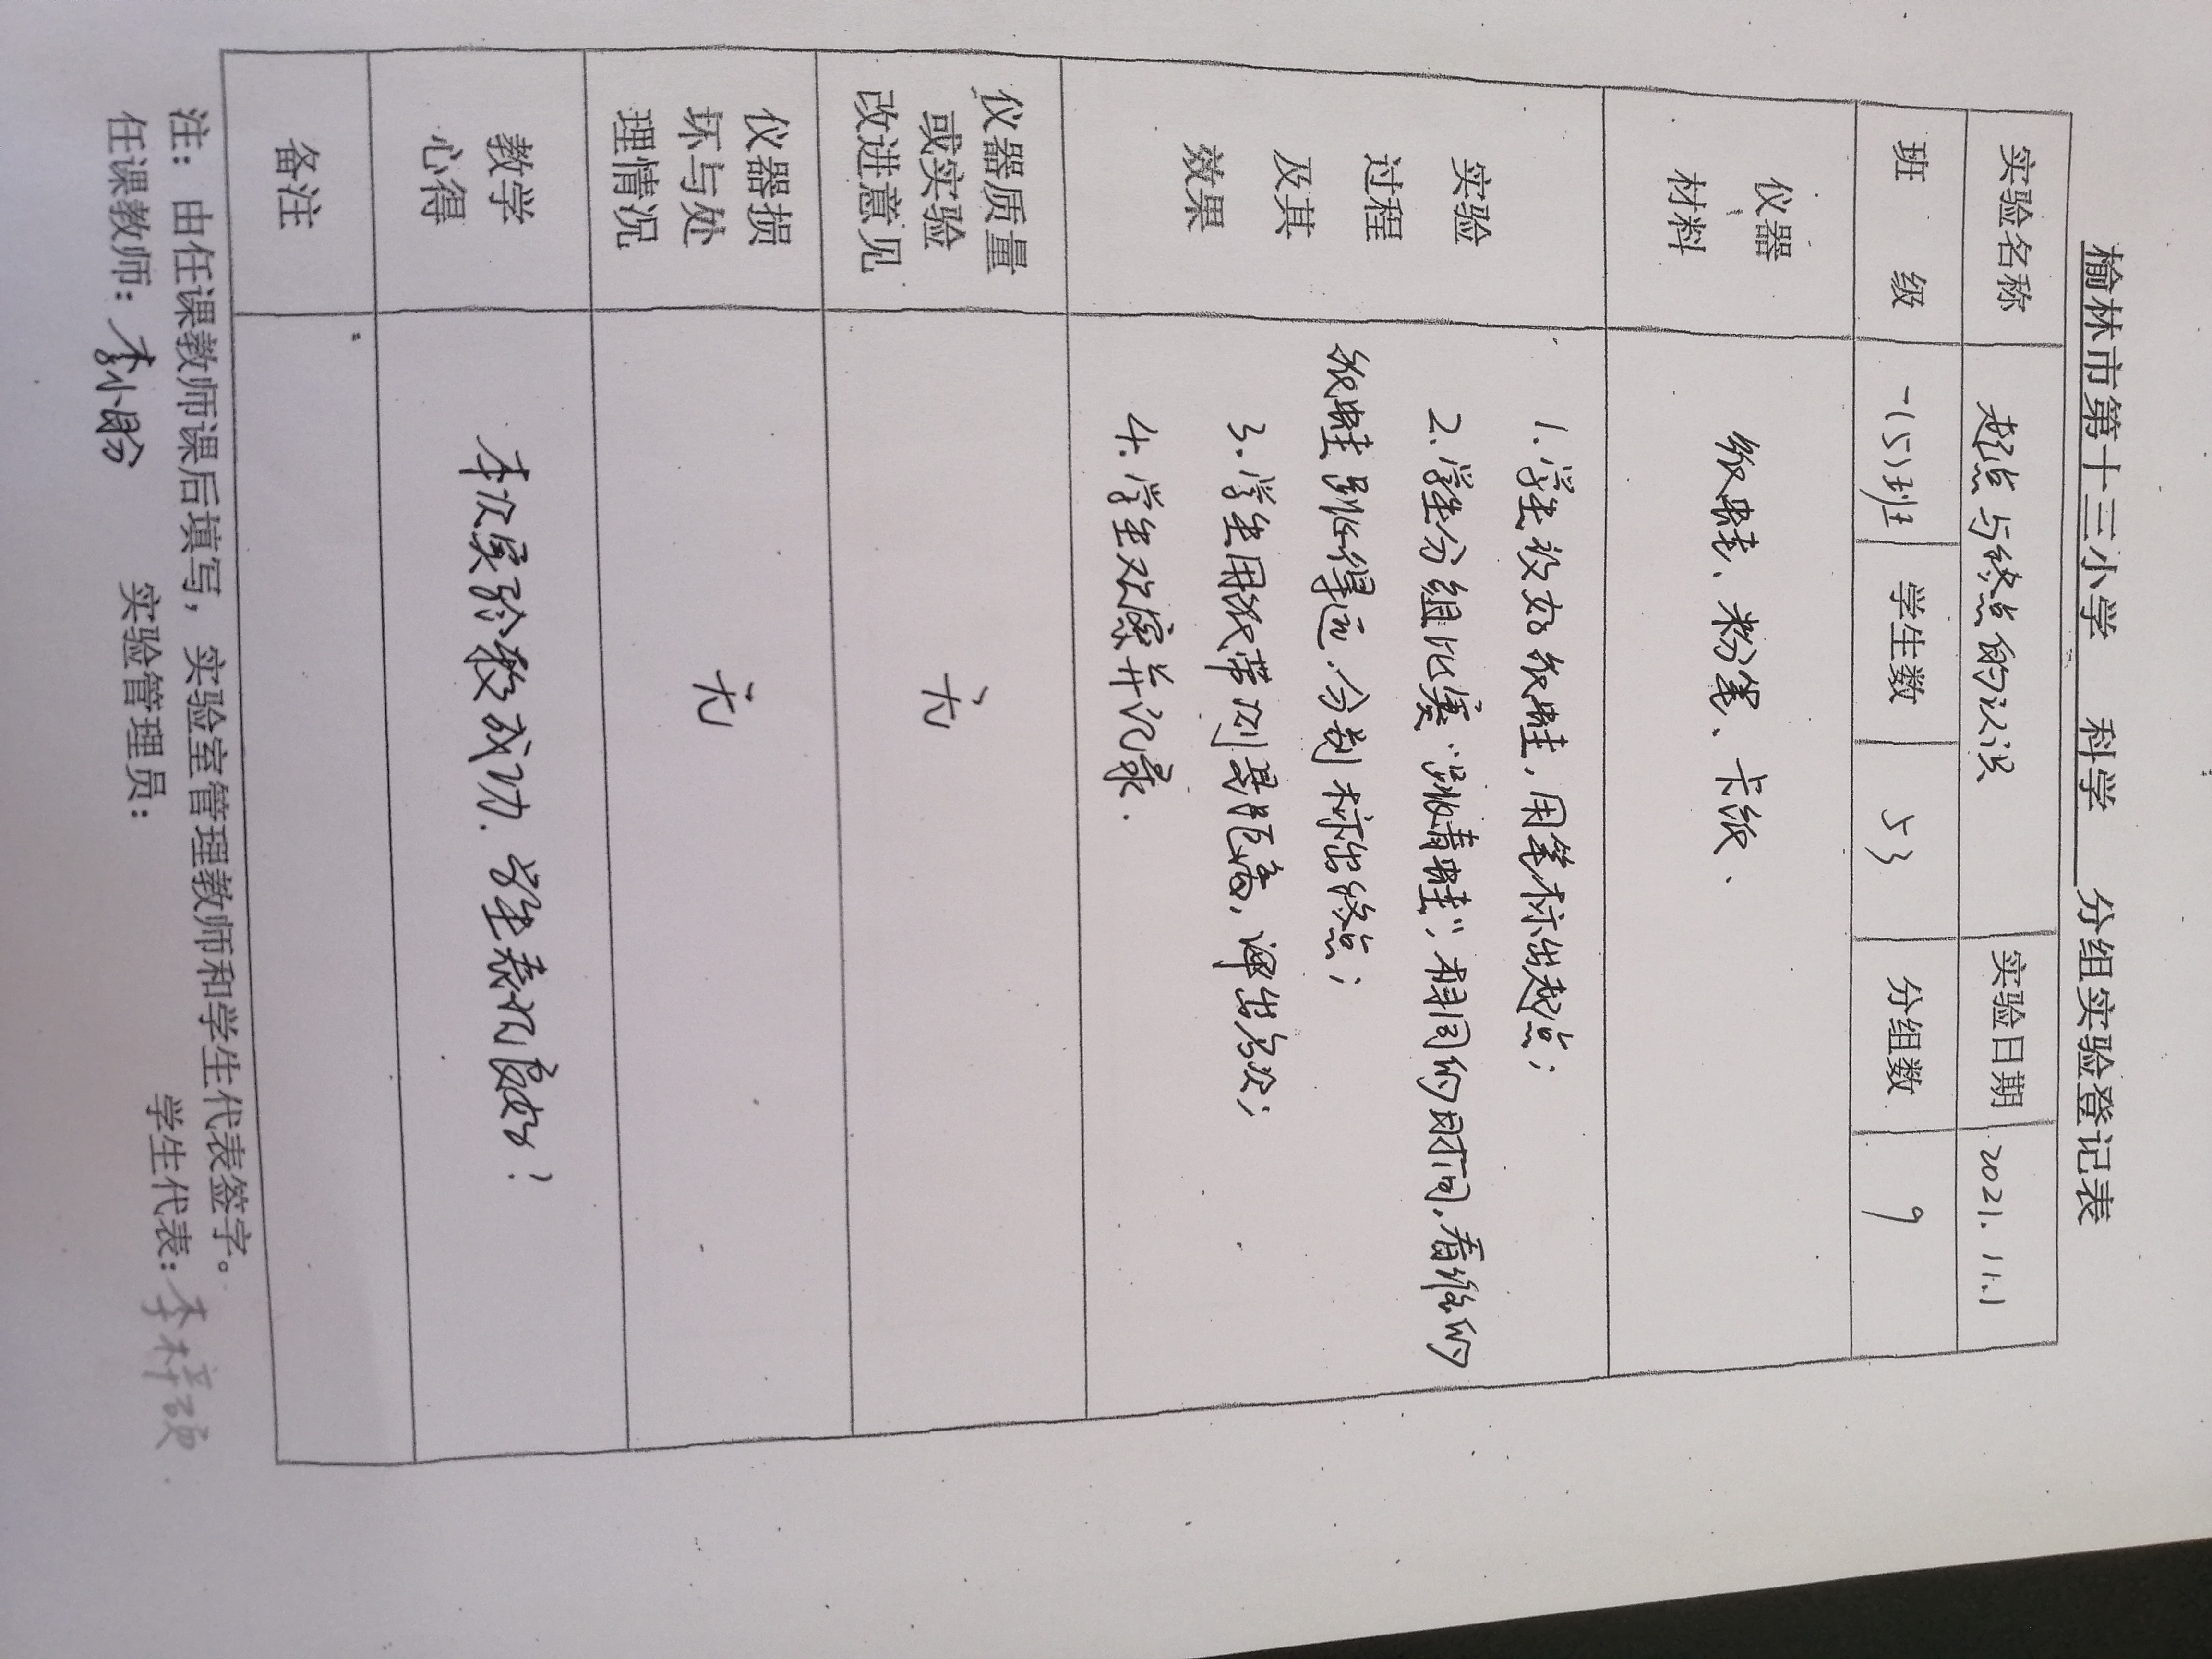 榆林市第十三小学 科学 分组实验登记表
实验名称 起点与终点的认识 实验日期 2021.11.1
班级 一(5)班 学生数 53 分组数 9
仪器
材料
纸蛙、粉笔、卡纸.
实验
过程
及其
效果
1.学生放好纸蛙,用笔标出起点;
2.学生分组比赛“蹦青蛙”;相同的时间,看谁的
纸蛙蹦得远,分别标出终点;
3.学生用纸带测量距离,评出名次;
4.学生观察并记录.
仪器质量
或实验
改进意见
无
仪器损
坏与处
理情况
无
教学
心得
本次实验较成功.学生表现良好;
备注
注:由任课教师课后填写,实验室管理教师和学生代表签字。
任课教师:李小盼 实验管理员: 学生代表:李梓